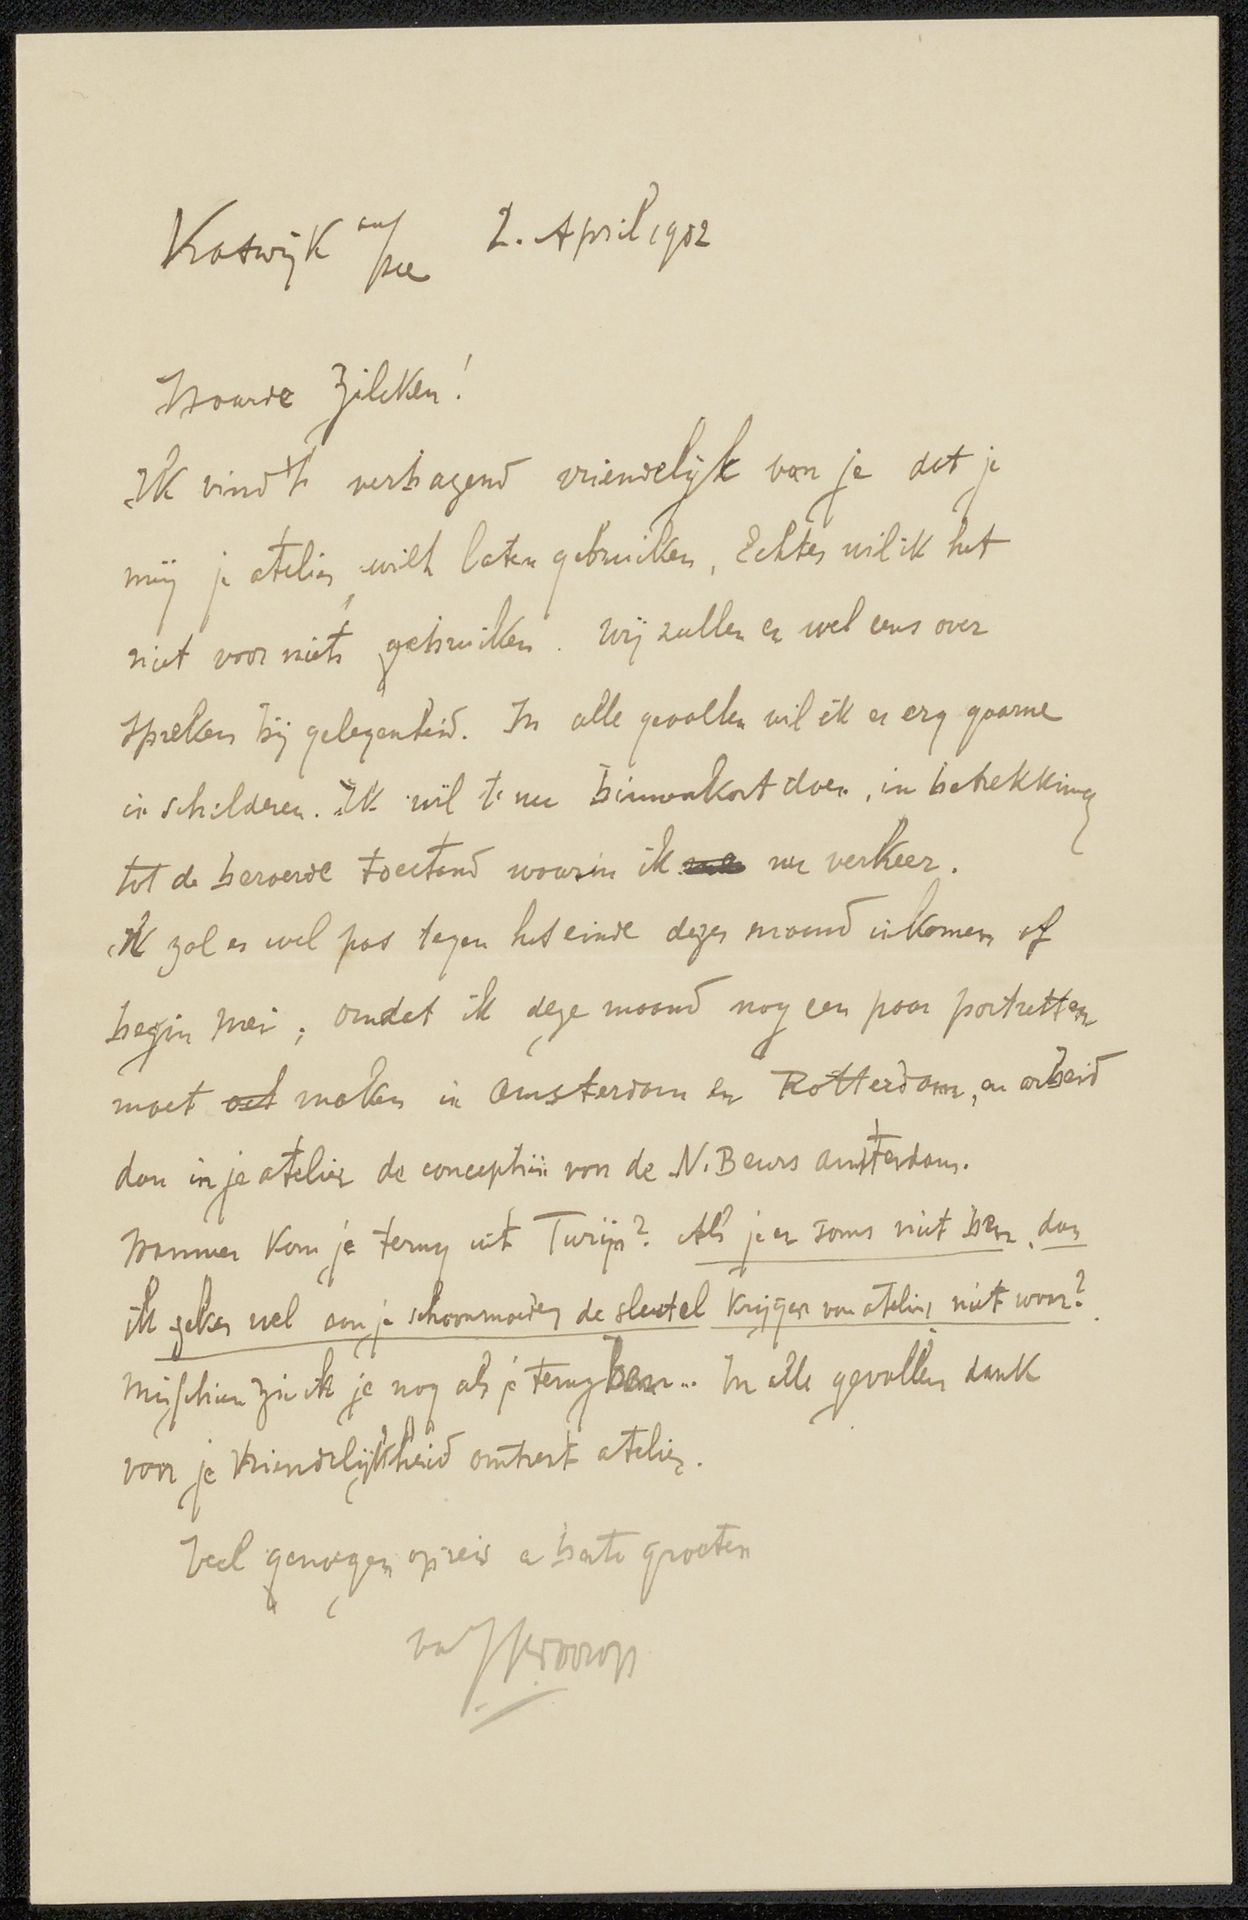 Katwijk a/zee 2. April 1902
Waarde Zilcken!
Ik vind 't verbazend vriendelijk van je dat je
mij je atelier wilt laten gebruiken, Echter wil ik het
niet voor niets gebruiken. Wij zullen er wel eens over
spreken bij gelegenheid. In alle gevallen wil ik er erg gaarne
in schilderen. Ik wil 't nu binnenkort doen, in betrekking
tot de beroerde toestand waarin ik nu verkeer.
Ik zal er wel pas tegen het einde dezer maand inkomen of
begin Mei, omdat ik deze maand nog een paar portretten
moet maken in Amsterdam en Rotterdam, en arbeid
dan in je atelier de conceptiën van de N. Beurs Amsterdam.
Wanneer kom je terug uit Turijn? Als je er soms niet ben, dan
ik zeker wel aan je schoonmoeder de sleutel krijgen van atelier, niet waar?
Misschien zie ik je nog als je terug ben... In alle gevallen dank
voor je vriendelijkheid omtrent atelier.
Veel genoegen op reis en beste groeten
van J Th. Toorop